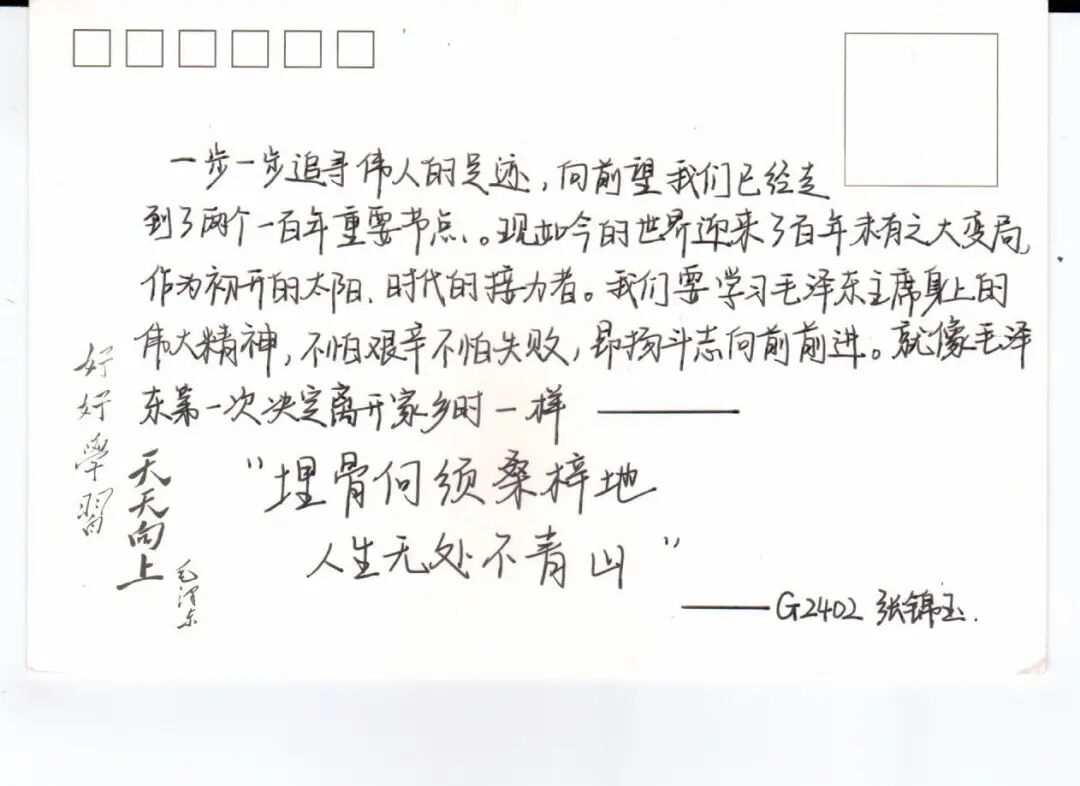 一步一步追寻伟人的足迹，向前望我们已经走
到了两个一百年重要节点。现如今的世界迎来了百年未有之大变局，
作为初升的太阳、时代的接力者。我们要学习毛泽东主席身上的
伟大精神，不怕艰辛不怕失败，昂扬斗志向前前进。就像毛泽
东第一次决定离开家乡时一样 ——
“埋骨何须桑梓地
人生无处不青山”
——G2402 张锦玉.
好好学习
天天向上
毛泽东